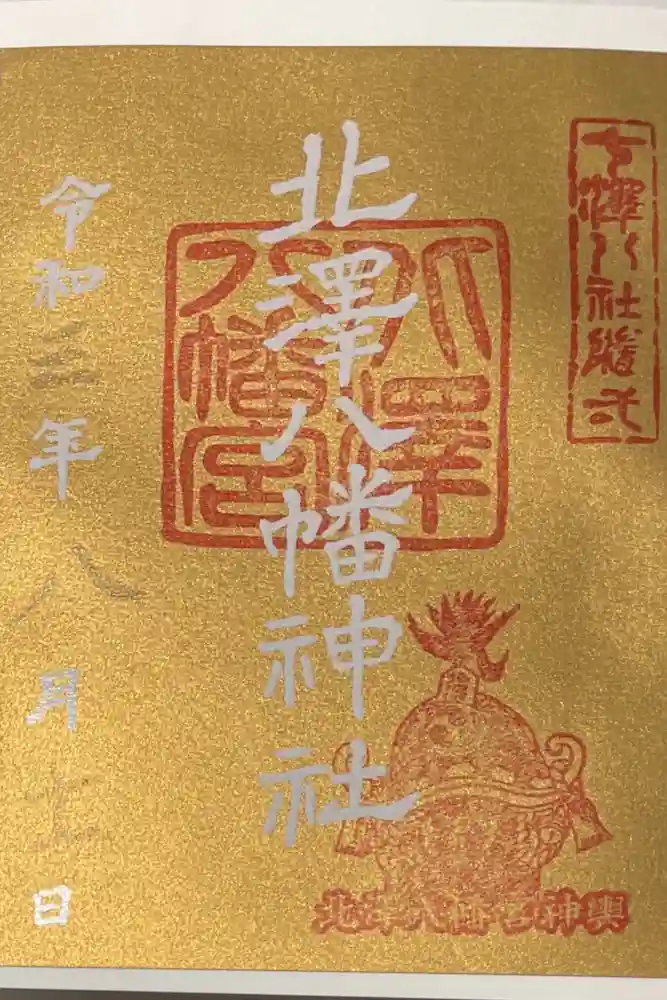 七澤八社隨弌
北澤八幡神社
北澤
八幡宮
北澤八幡宮神輿
令和
年八月
日